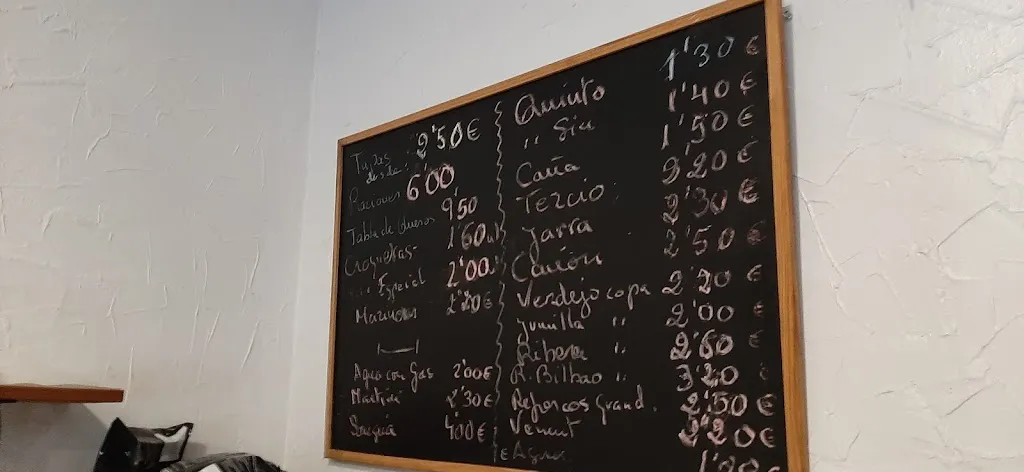 Tapas desde 2'50€
Raciones 6'00
Tabla de Quesos 9'50
Croquetas 1'60 u
'' Especial 2'00 u
2'20€
Agua con Gas 2'00€
Martini 2'30€
Sangría 4'00€
Quinto 1'30€
'' Sin 1'40€
Caña 1'50€
Tercio 2'20€
Jarra 2'30€
Cañón 2'50€
Verdejo copa 2'20€
Jumilla '' 2'00€
Ribera '' 2'60€
R. Bilbao '' 3'20€
Refrescos grand. 2'50€
Vermut 2'20€
Agua